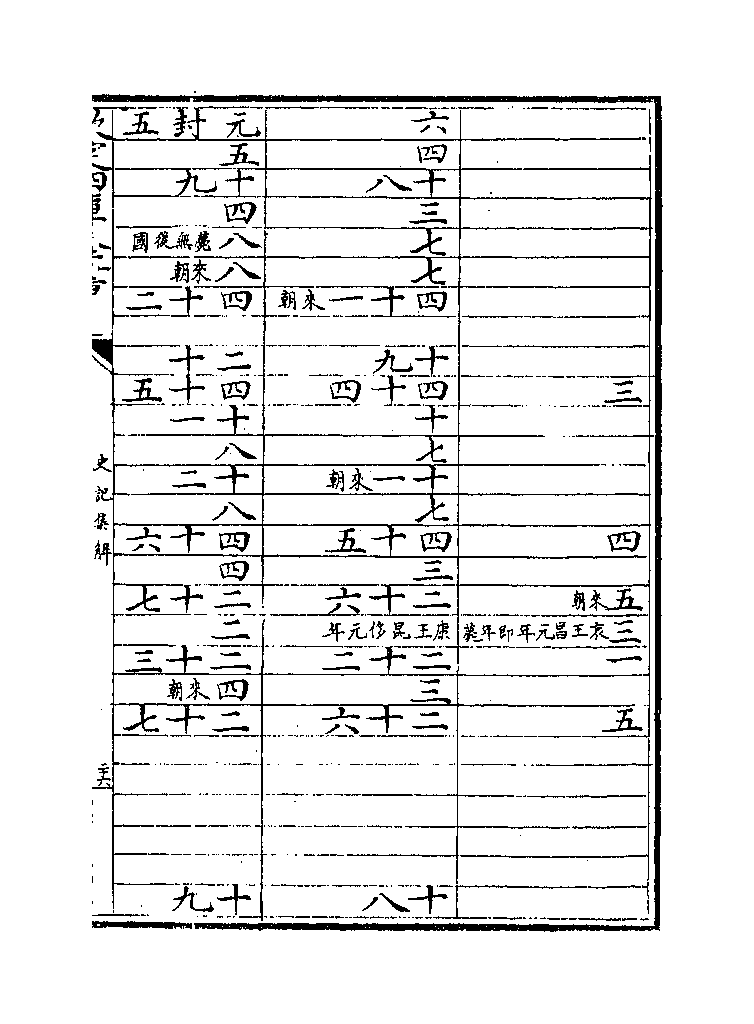 三
四
五來朝
三哀王昌元年即年薨
一
五
六
四
十八
三
七
七
四十一來朝
十九
四十四
十
七
十一來朝
七
四十五
三
二十六
康王昆侈元年
二十二
三
二十六
十八
元封五
五
十九
四
八薨無後國
八來朝
四十二
二十
四十五
十一
八
十二
八
四十六
四
二十七
二
二十三
四來朝
二十七
十九
史記集解